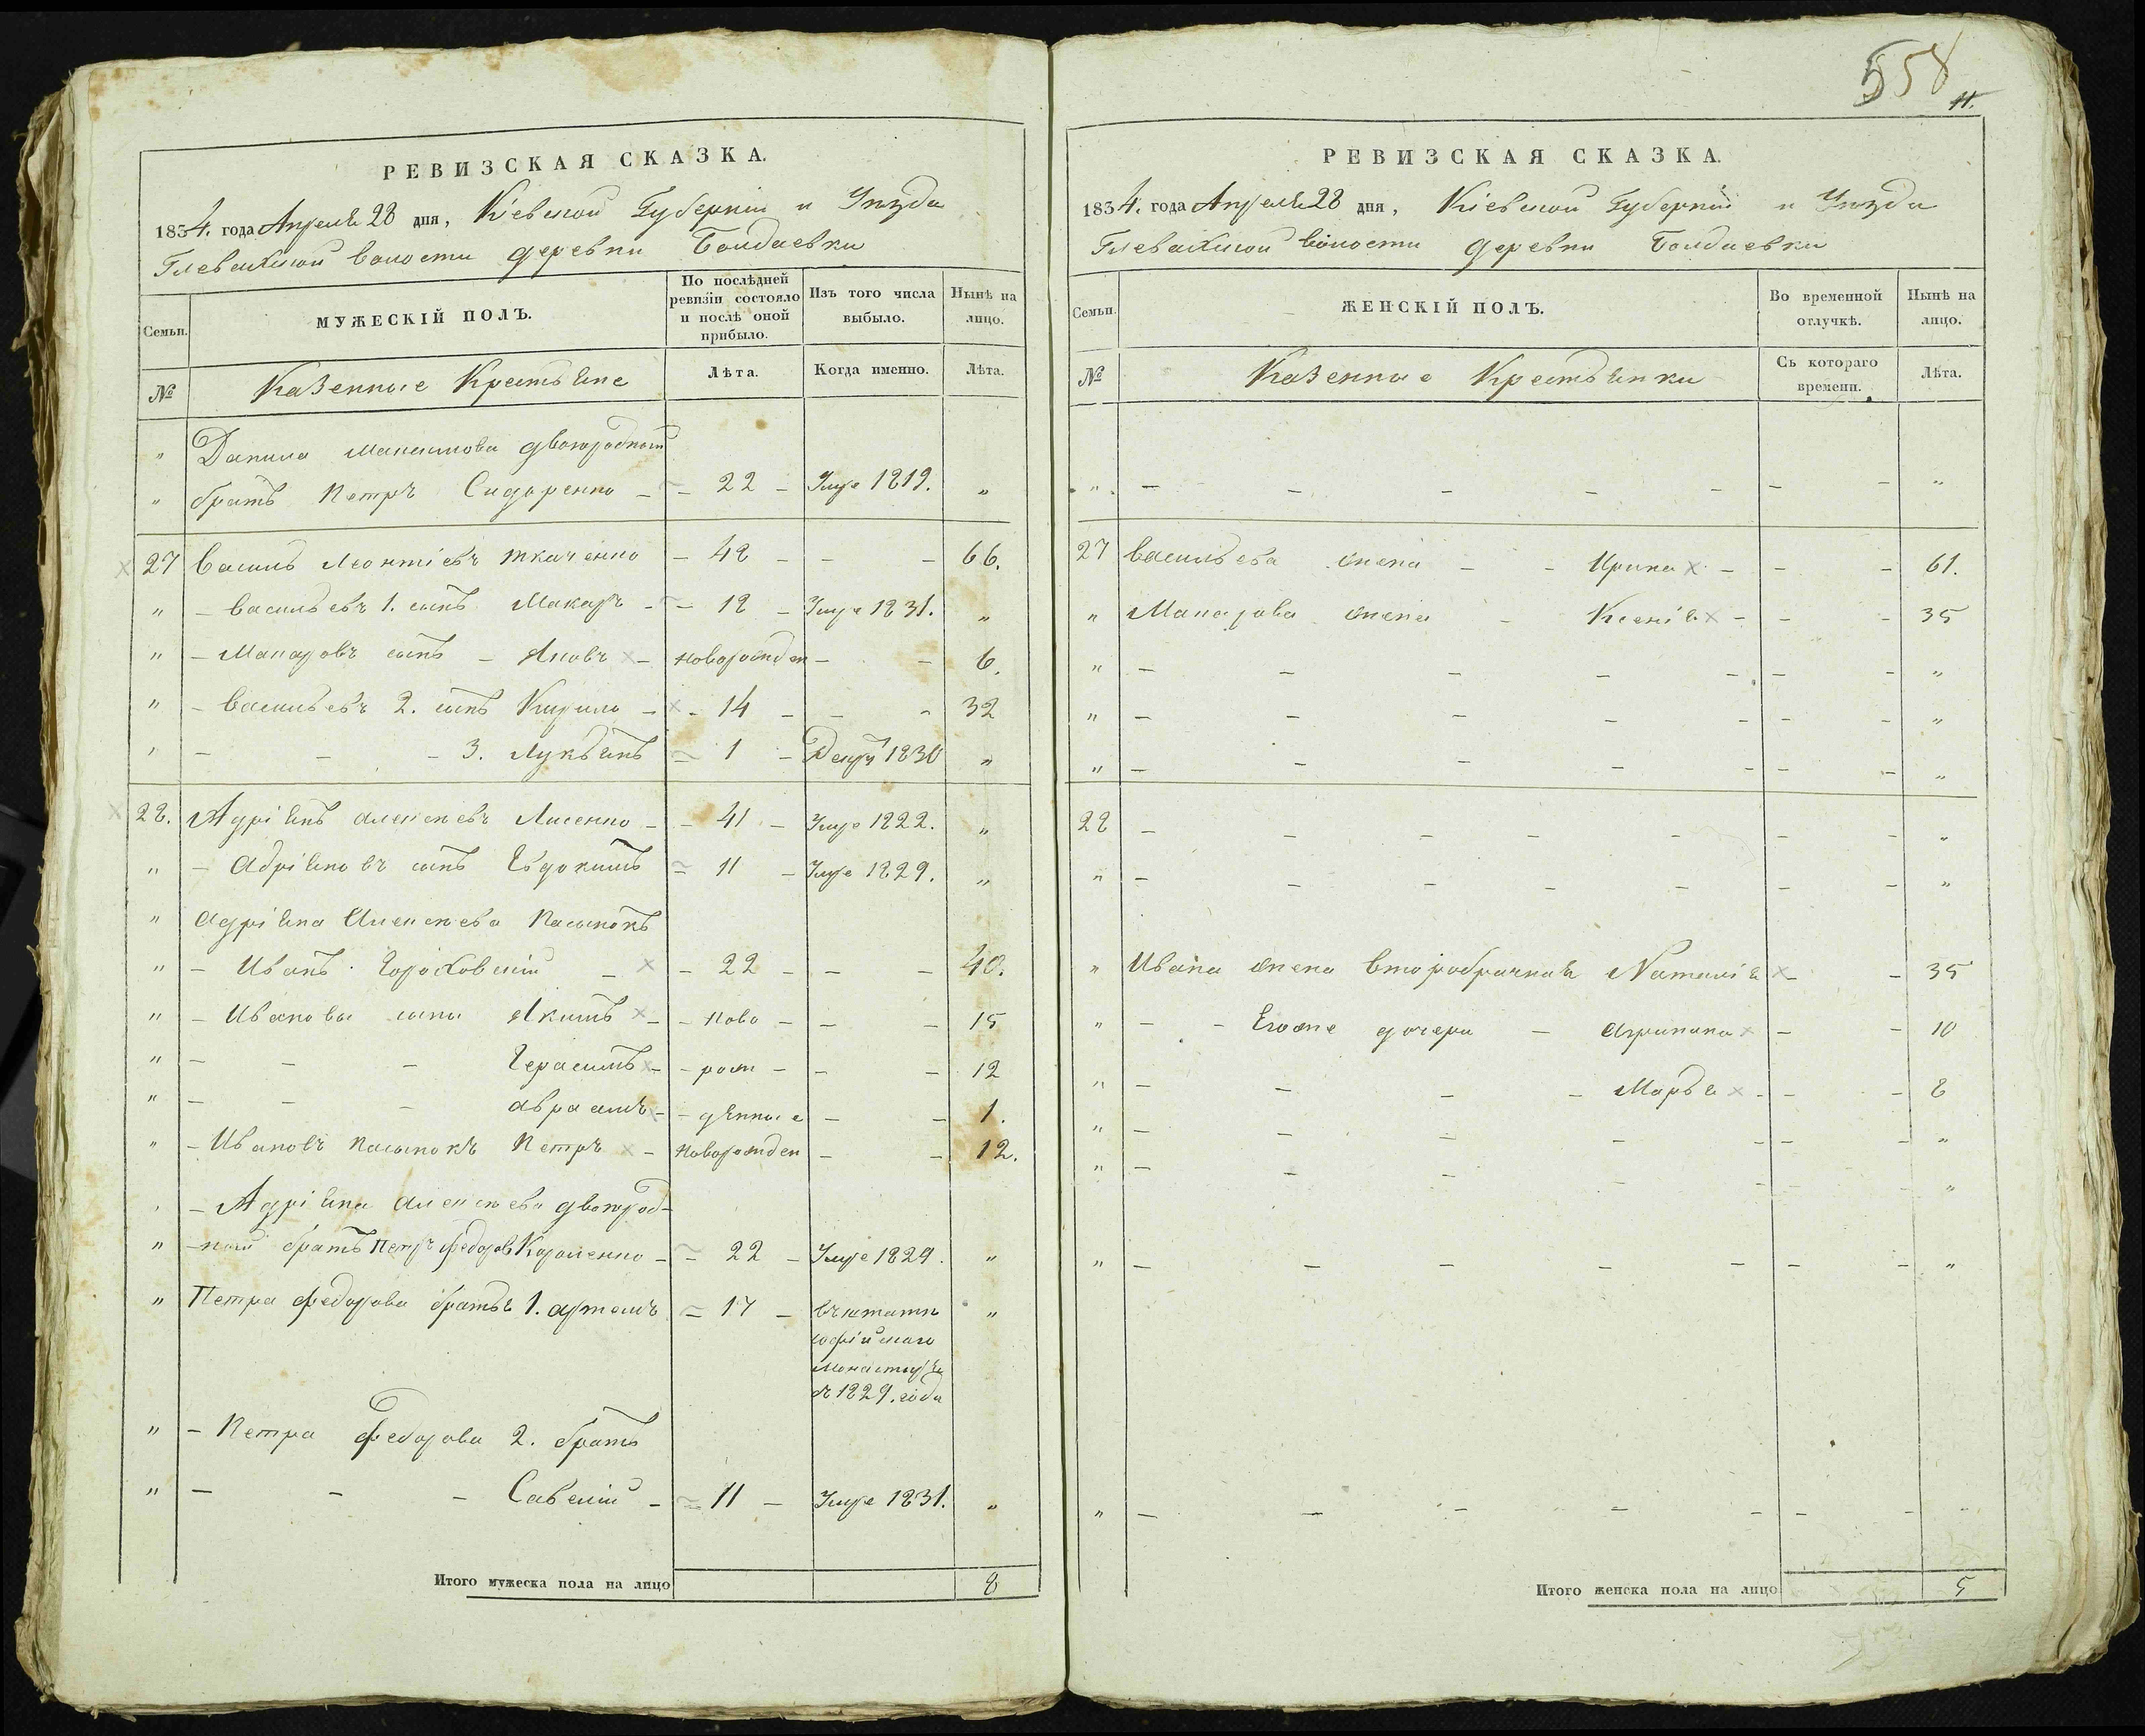 РЕВИЗСКАЯ СКАЗКА.
1834. года Апреля 28 дня, Кіевской Губерніи и Уѣзда
Глевахской Волости деревни Болдаевки
Семьи.
МУЖЕСКІЙ ПОЛЪ.
По послѣдней ревизіи состояло и послѣ оной прибыло.
Изъ того числа выбыло.
Нынѣ на лицо.
№
Казенные Крестьяне
Лѣта.
Когда именно.
Лѣта.
" Данила Максимова двоюродной
" братъ Петръ Сидоренко - - 22 - Умре 1819. "
27 Василь Леонтіевъ Ткаченко - 48 - - - 66.
" - Васильевъ 1. сынъ Макаръ - - 18 - Умре 1831. "
" - Макаровъ сынъ - Яковъ - новорожден - - 6.
" - Васильевъ 2. сынъ Кирило - - 14 - - - 32
" - - - 3. Лукьянъ - 1 - 1830 "
28. Адріянъ Алексѣевъ Лисенко - - 41 - Умре 1822. "
" - Адріяновъ сынъ Евдокимъ - 11 - Умре 1829. "
" Адріяна Алексѣева пасынокъ
" - Иванъ Гороховскій - - 22 - - - 40.
" - Ивановы сыны Якимъ - - ново - - - 15
" - - - Герасимъ - - рож - - - 12
" - - - Авраамъ - - дѣнные - - 1.
" - Ивановъ пасынокъ Петръ - новорожден - - 12.
" - Адріяна Алексѣева двоюрод-
" -ный братъ Петръ Федоровъ Короленко - - 22 - Умре 1829. "
" Петра Федорова братья 1. Артемъ - 17 - въ штатѣ "
софійскаго
монастыря
съ 1829. года
" - Петра Федорова 2. братъ
" - - - Савелій - - 11 - Умре 1831. "
Итого мужеска пола на лицо 8
558
11.
РЕВИЗСКАЯ СКАЗКА.
1834. года Апреля 28 дня, Кіевской Губерніи и Уѣзда
Глевахской Волости деревни Болдаевки
Семьи.
ЖЕНСКІЙ ПОЛЪ.
Во временной отлучкѣ.
Нынѣ на лицо.
№
Казенные Крестьянки
Съ котораго времени.
Лѣта.
" - - - - - - - "
27 Васильева жена - - Ирина - - - 61.
" Макарова жена - Ксенія - - - 35
" - - - - - - - "
" - - - - - - - "
" - - - - - - - "
28 - - - - - - - "
" - - - - - - - "
" Ивана жена второбрачная Наталія - - 35
" - - Егоже дочери - Агрипина - - 10
" - - - - Марья - - - 8
" - - - - - - - "
" - - - - - - "
" - - - - - - - "
" - - - - - - - "
Итого женска пола на лицо 5